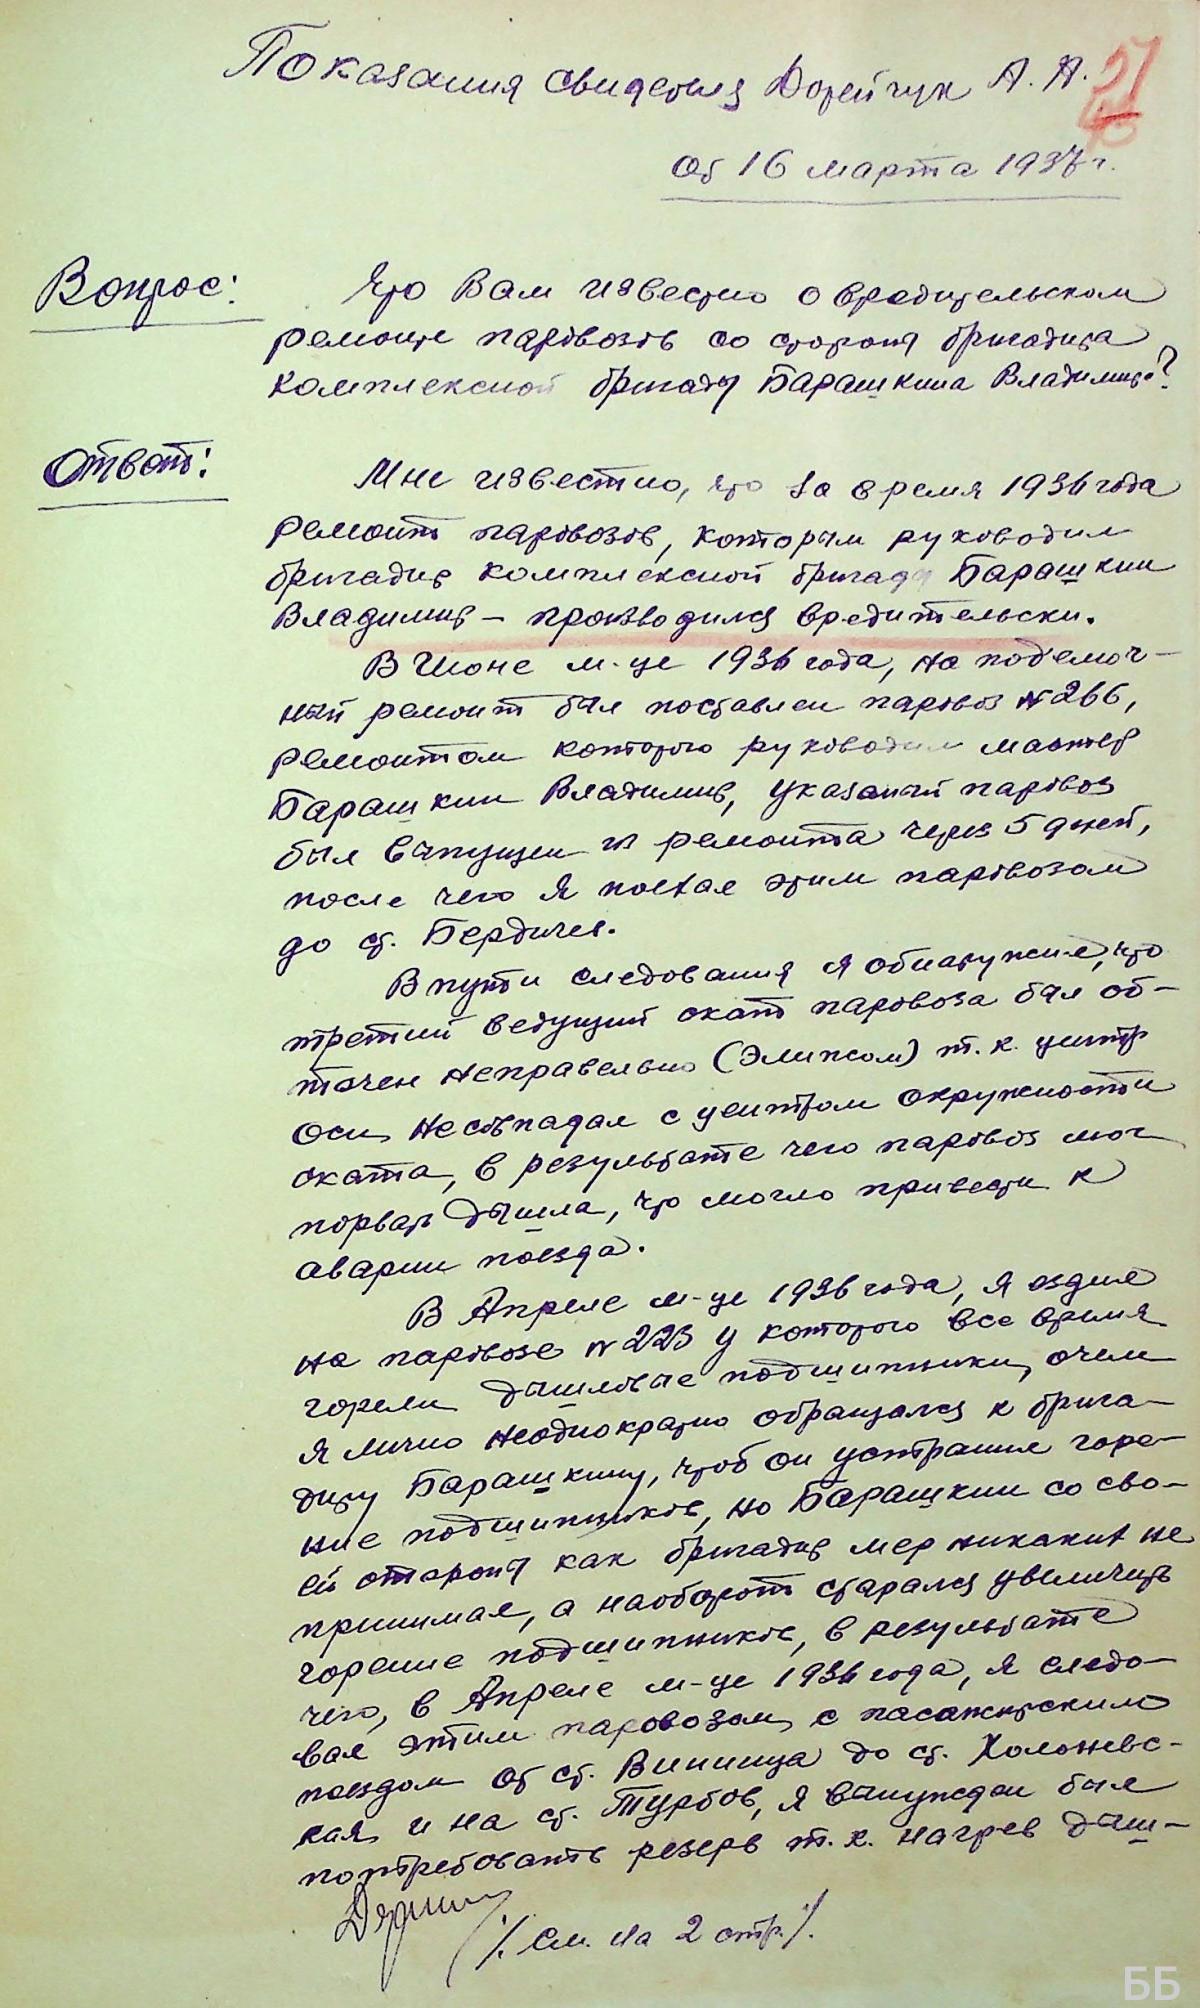 Показания свидетеля Дорейчук А. А.
57
40
От 16 марта 1937 г.
Вопрос: Что Вам известно о вредительском
ремонте паровозов со стороны бригадира
комплексной бригады Барашкина Владимира?
Ответ: Мне известно, что за время 1936 года
ремонт паровозов, которым руководил
бригадир комплексной бригады Барашкин
Владимир – производился вредительски.
В Июне м-це 1936 года, на подъемоч-
ный ремонт был поставлен паровоз № 266,
ремонтом которого руководил мастер
Барашкин Владимир, указаный паровоз
был выпущен из ремонта через 5 дней,
после чего я поехал этим паровозом
до ст. Бердичев.
В пути следования я обнаружил, что
третий ведущий скат паровоза был об-
точен неправельно (Элипсом) т. к. центр
оси несовпадал с центром окружности
ската, в результате чего паровоз мог
порвать дышла, что могло привести к
аварии поезда.
В Апреле м-це 1936 года, я ездил
на паровозе № 223 у которого все время
горели дышловые подшипники, о чем
я лично неоднократно обращался к брига-
диру Барашкину, чтоб он устранил горе-
ние подшипников, но Барашкин со сво-
ей стороны как бригадир мер никаких не
принимал, а наоборот старался увеличить
горение подшипников, в результате
чего, в Апреле м-це 1936 года, я следо-
вал этим паровозом с пасажирским
поездом от ст. Винница до ст. Холоневс-
кая и на ст. Турбов, я вынужден был
потребовать резерв т. к. нагрев дыш-
/. См. на 2 стр. /.
ББ